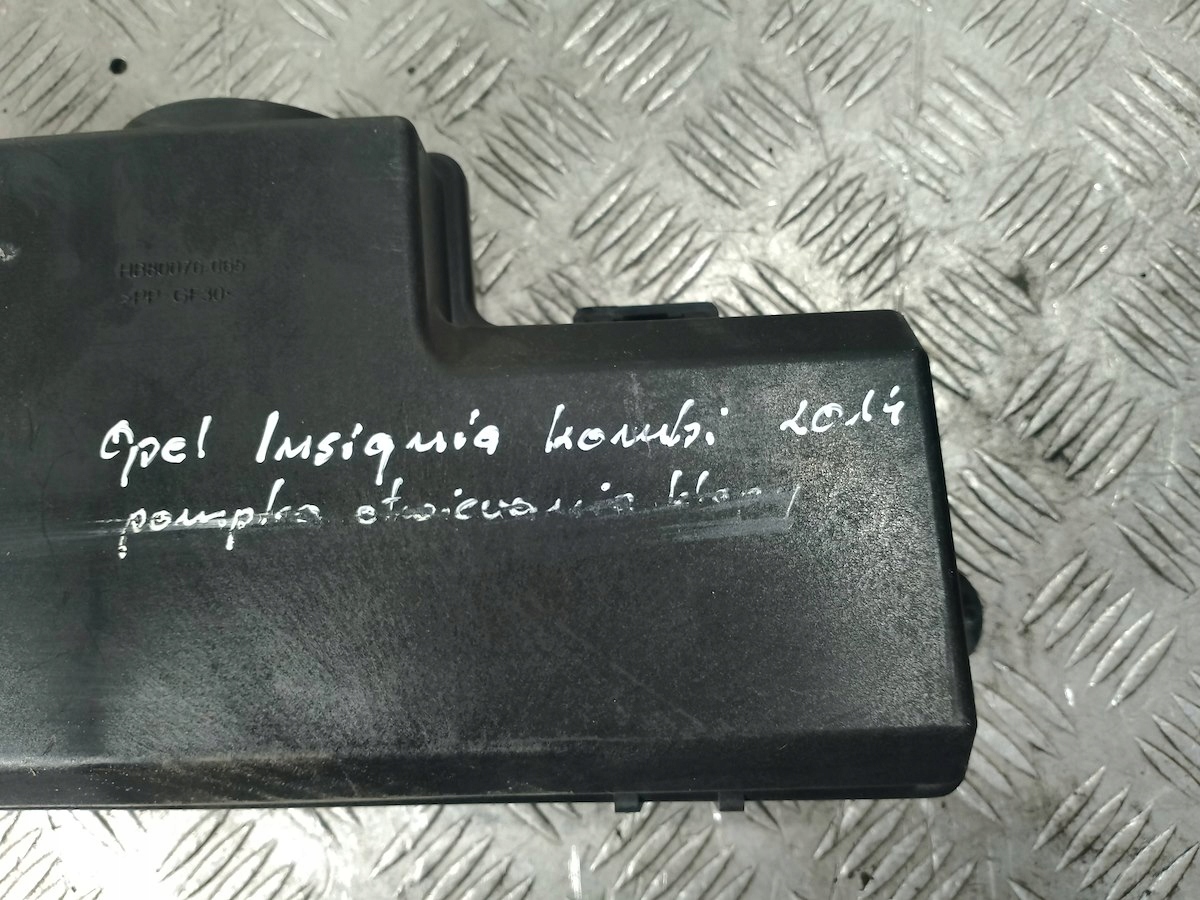 HB80076 665
>PP-GF30<
Opel Insignia kombi 2014
pompka otwierania klapy